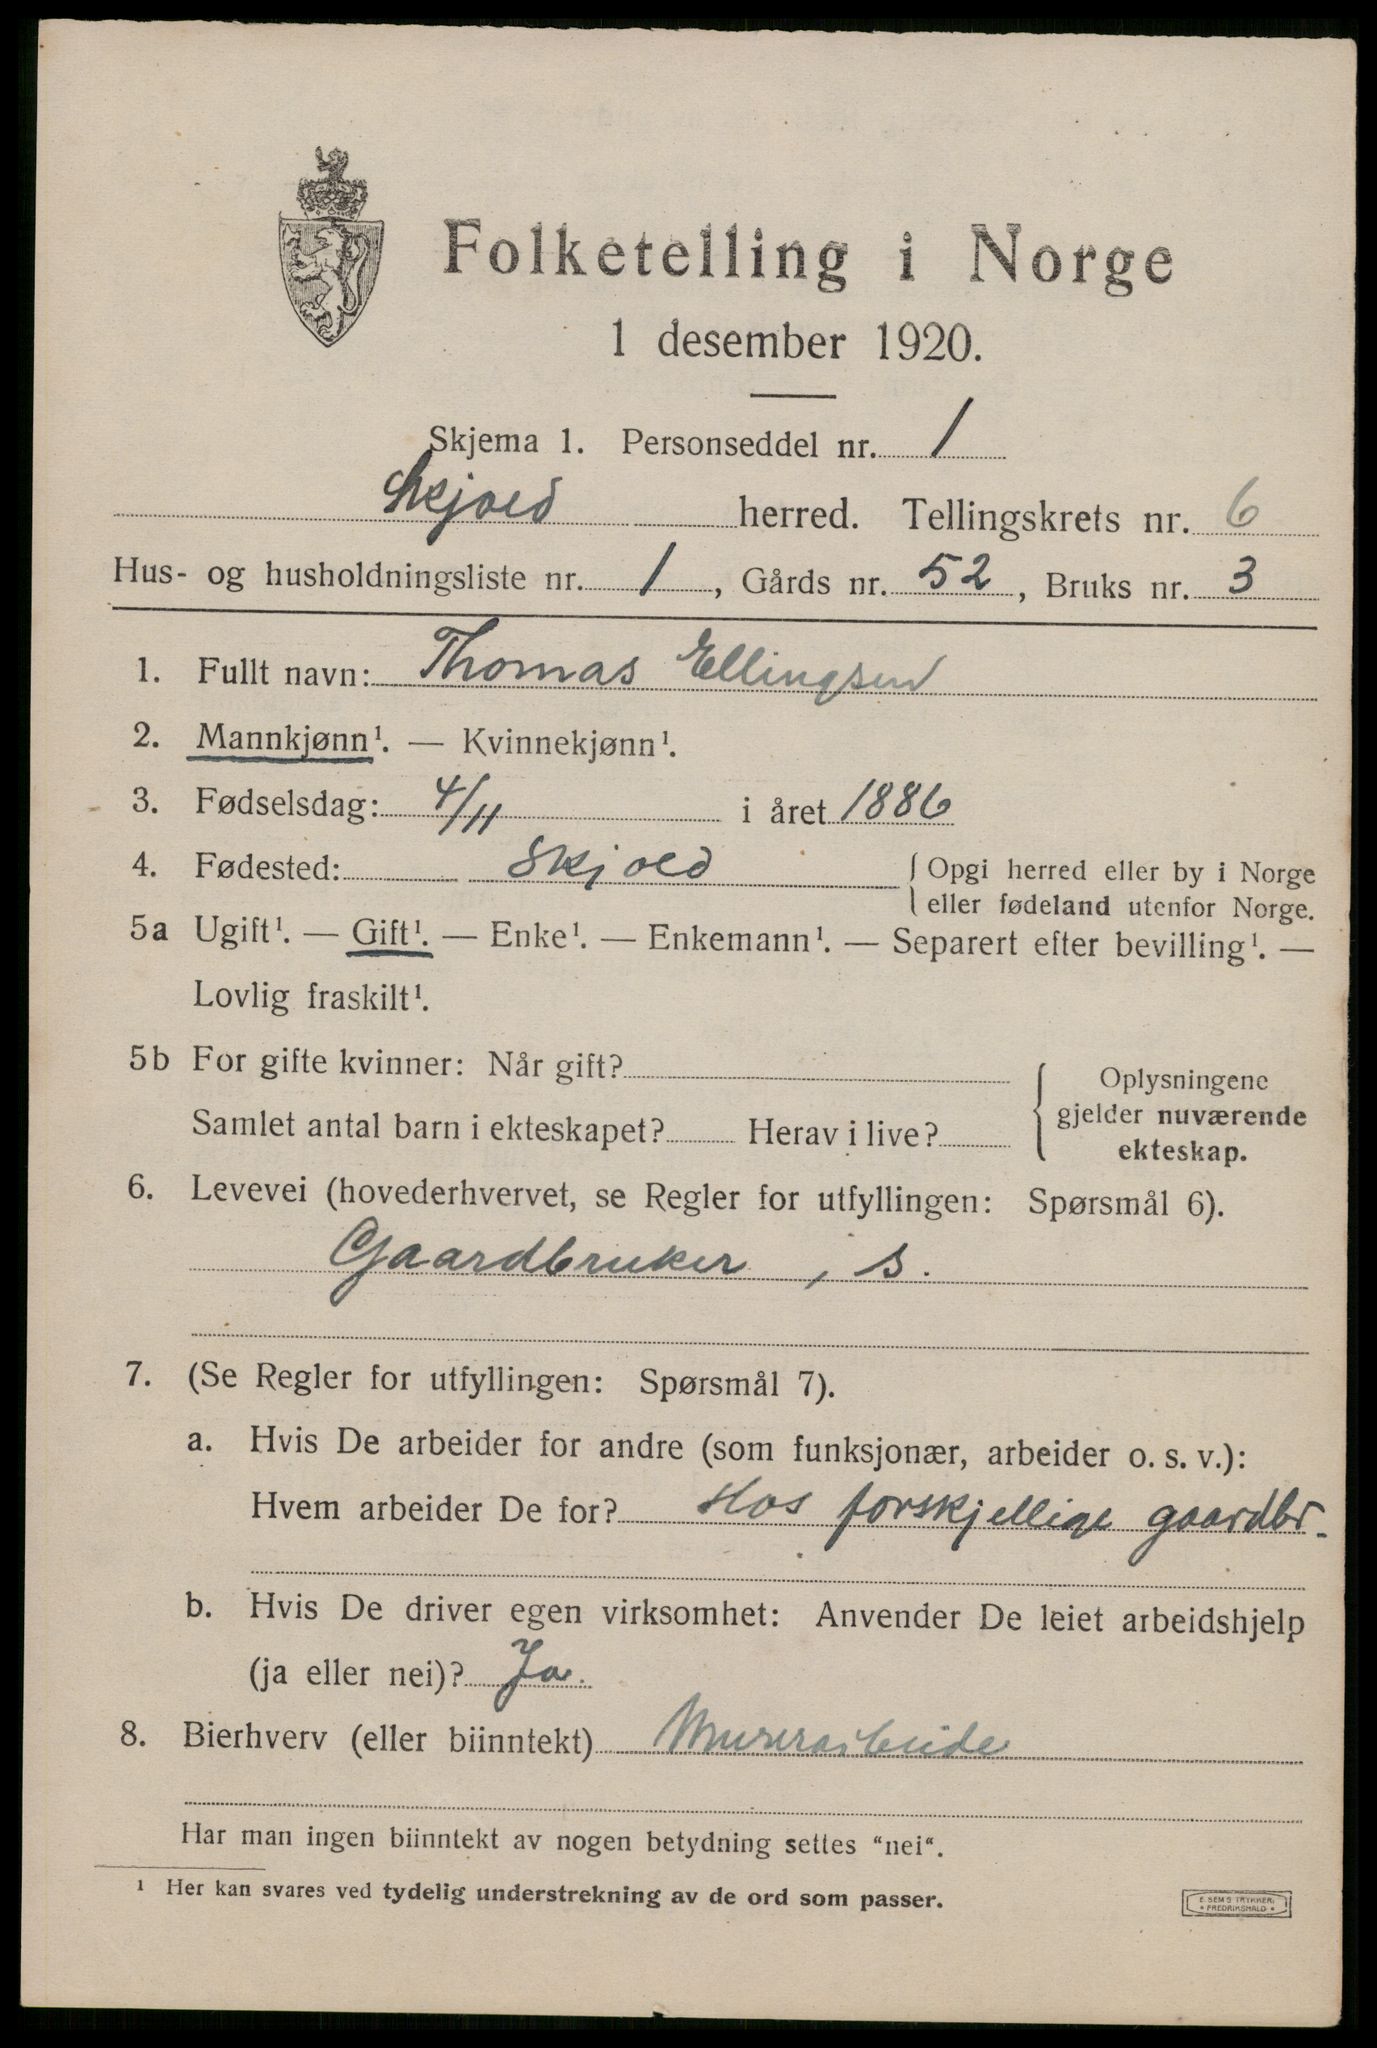 Folketelling i Norge
1 desember 1920.
Skjema 1. Personseddel nr. 1
Skjold herred. Tellingskrets nr. 6
Hus- og husholdningsliste nr. 1, Gårds nr. 52, Bruks nr. 3
1. Fullt navn: Thomas Ellingsen
2. Mannkjønn¹. — Kvinnekjønn¹.
3. Fødselsdag: 4/11 i året 1886
4. Fødested: Skjold { Opgi herred eller by i Norge
eller fødeland utenfor Norge.
5a Ugift¹. — Gift¹. — Enke¹. — Enkemann¹. — Separert efter bevilling¹. —
Lovlig fraskilt¹.
5b For gifte kvinner: Når gift?
Samlet antal barn i ekteskapet? Herav i live?
{ Oplysningene
gjelder nuværende
ekteskap.
6. Levevei (hovederhvervet, se Regler for utfyllingen: Spørsmål 6).
Gaardbruker, s.
7. (Se Regler for utfyllingen: Spørsmål 7).
a. Hvis De arbeider for andre (som funksjonær, arbeider o. s. v.):
Hvem arbeider De for? Hos forskjellige gaardbr.
b. Hvis De driver egen virksomhet: Anvender De leiet arbeidshjelp
(ja eller nei)? Ja.
8. Bierhverv (eller biinntekt) Murerarbeide
Har man ingen biinntekt av nogen betydning settes “nei“.
¹ Her kan svares ved tydelig understrekning av de ord som passer.
E. SEM'S TRYKKERI
• FREDRIKSHALD •